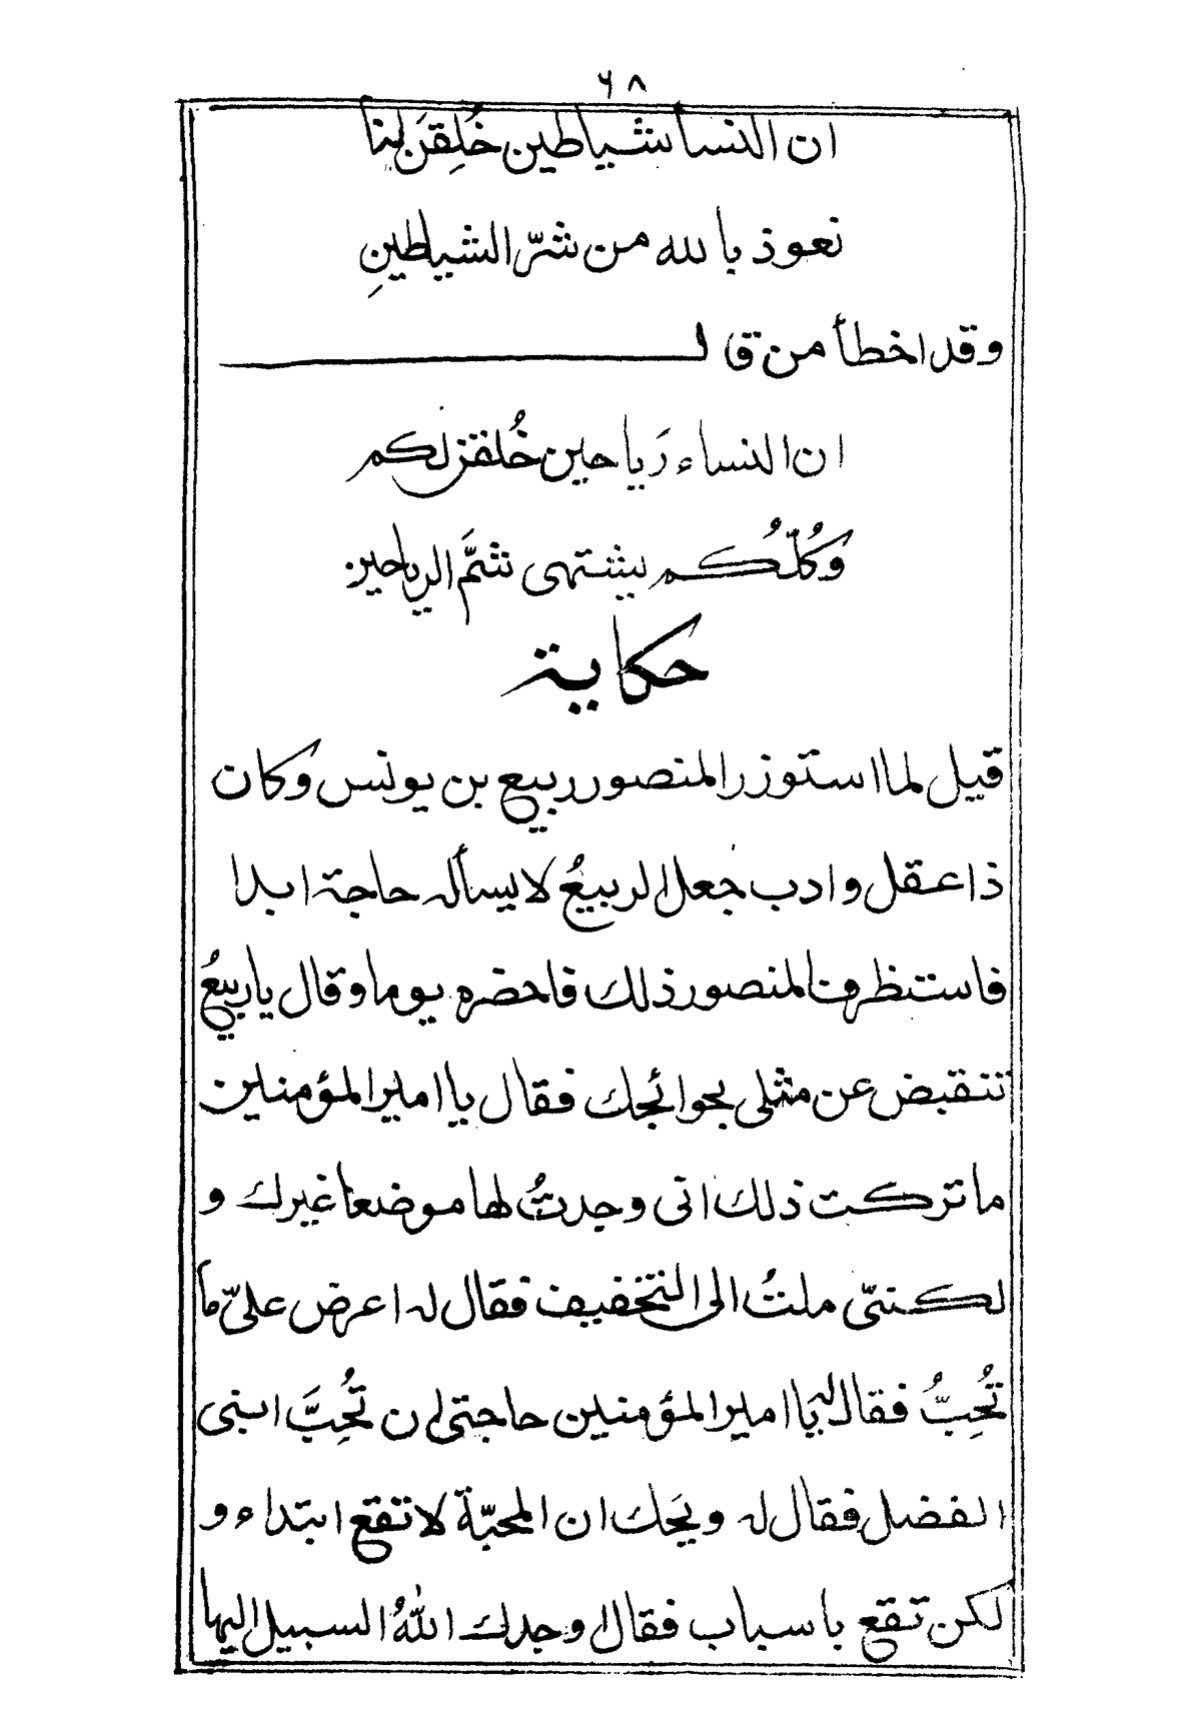 ٦٨
ان النسا شياطين خُلِقنَ لنا
نعوذ بالله من شرّ الشياطينِ
وقد اخطأ من قال
ان النساء رَياحين خُلقن لكم
وَكُلّكُم يشتهى شمَّ الرياحين
حكاية
قيل لما استوزر المنصور ربيع بن يونس وكان
ذا عقل وادب جعل الربيعُ لا يسأله حاجة ابدا
فاستظرف المنصور ذلك فاحضره يوما وقال يا ربيعُ
تنقبض عن مثلى بحوائجك فقال يا امير المؤمنين
ما تركت ذلك انى وجدتُ لها موضعا غيرك و
لكننىّ ملتُ الى التخفيف فقال له اعرض علىّ ما
تُحِبُّ فقال له يا امير المؤمنين حاجتى ان تُحِبَّ ابنى
الفضل فقال له ويَحك ان المحبّة لا تقع ابتداء و
لكن تقع باسباب فقال اوجدك اللهُ السبيل اليها